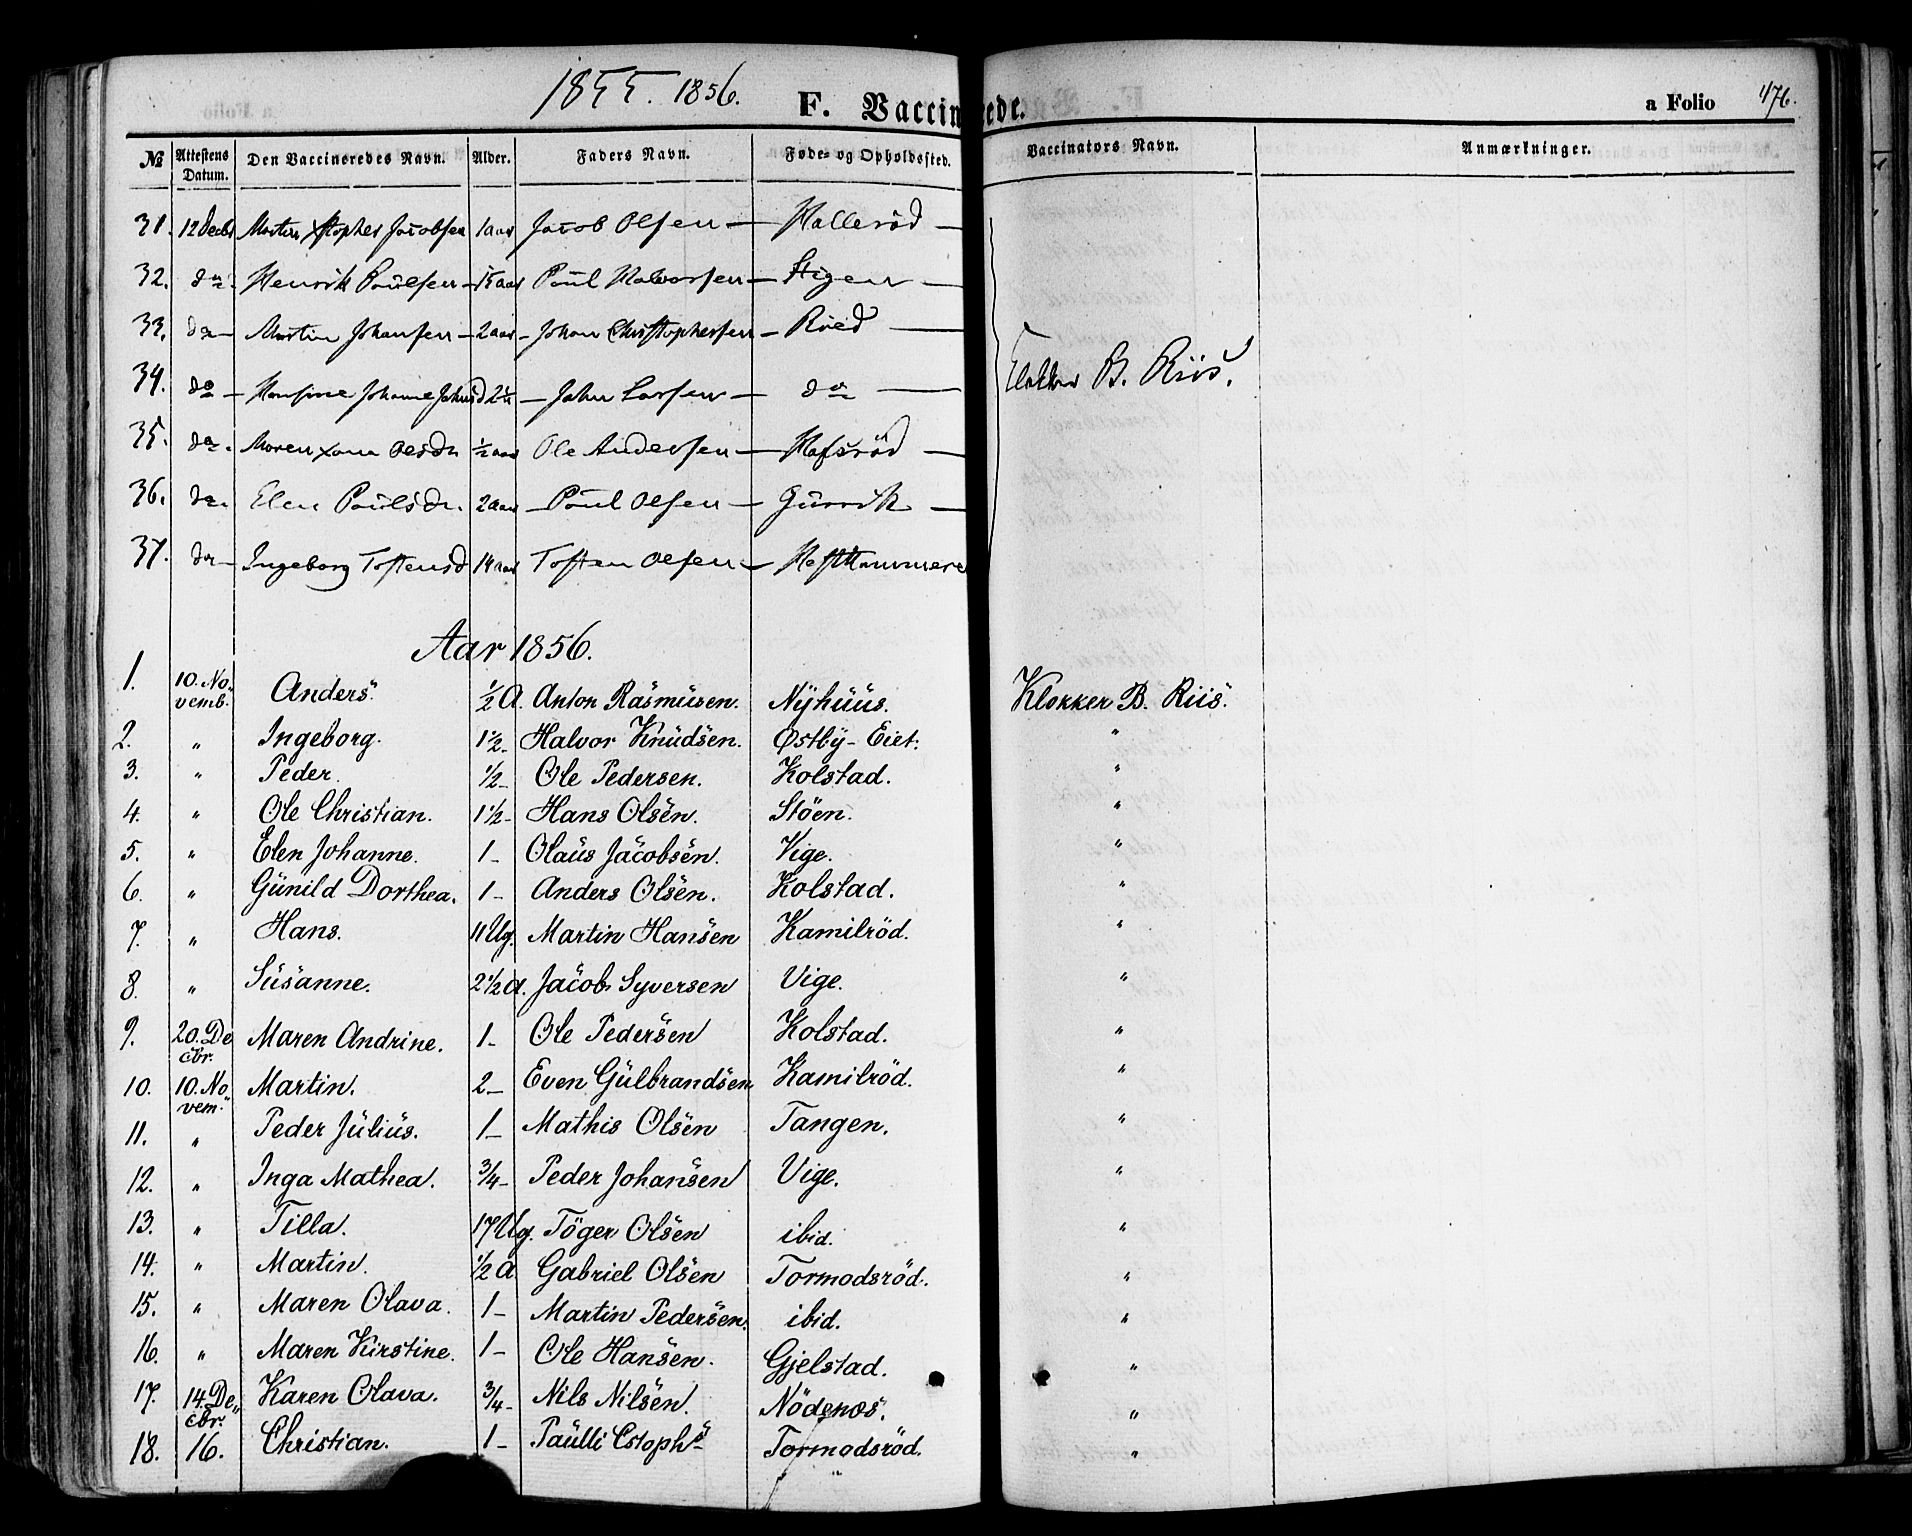 1855. 1856.
F. Vaccinerede.
a Folio 476.
№ Attestens Datum. Den Vaccineredes Navn. Alder. Faders Navn. Føde- og Opholdssted. Vaccinators Navn. Anmærkninger.
31. 12 Decbr Martin Xstopher Jacobsen 1 aar Jacob Olsen — Hallerød —
32. do Henrik Poülsen — 15 aar Poül Halvorsen — Stigen —
33. do — Martin Johansen — 2 aar - Johan Christophersen — Röed —
34. do — Johanne 2½ — John Larsen — do — Klokker B. Riis.
35. do. Maren Xane Olsdr ½ aar Ole Andersen — Hafsröd —
36. do Elen Poülsdr. 2 aar — Poül Olsen — Günvik —
37. do — Ingeborg Tostensd 14 aar Tosten Olsen —
Aar 1856.
1. 10. Novemb. Anders. ½ A. Anton Rasmüsen. Nÿhüüs. Klokker B. Riis.
2. " Ingeborg. 1½ - Halvor Knüdsen. Østbÿ - Eiet. "
3. " Peder. ½ - Ole Pedersen. Kolstad. "
4. " Ole Christian. 1½ - Hans Olsen. Stöen. "
5. " Elen Johanne. 1 - Olaüs Jacobsen. Vige. "
6. " Günild Dorthea. 1 - Anders Olsen. Kolstad. "
7. " Hans. 11 Ug. Martin Hansen Kamilröd. "
8. " Süsanne. 2½ A. Jacob Syversen Vige. "
9. 20. Decbr. Maren Andrine. 1 - Ole Pedersen Kolstad. "
10. 10. Novem. Martin. 2 - Even Gülbrandsen Kamilröd. "
11. " Peder Jülius. 1 - Mathis Olsen Tangen. "
12. " Inga Mathea. ¾ - Peder Johansen Vige. "
13. " Tilla. 17 Ug. Töger Olsen ibid. "
14. " Martin. ½ A Gabriel Olsen Tormodsröd. "
15. " Maren Olava. 1 - Martin Pedersen. ibid. "
16. " Maren Kirstine. 1 - Ole Hansen. Gjelstad. "
17. 14. Decbr. Karen Olava. ¾ - Nils Nilsen. Nödenæs. "
18. 16. Christian. 1 - Paülli Cstophs Tormodsröd. "